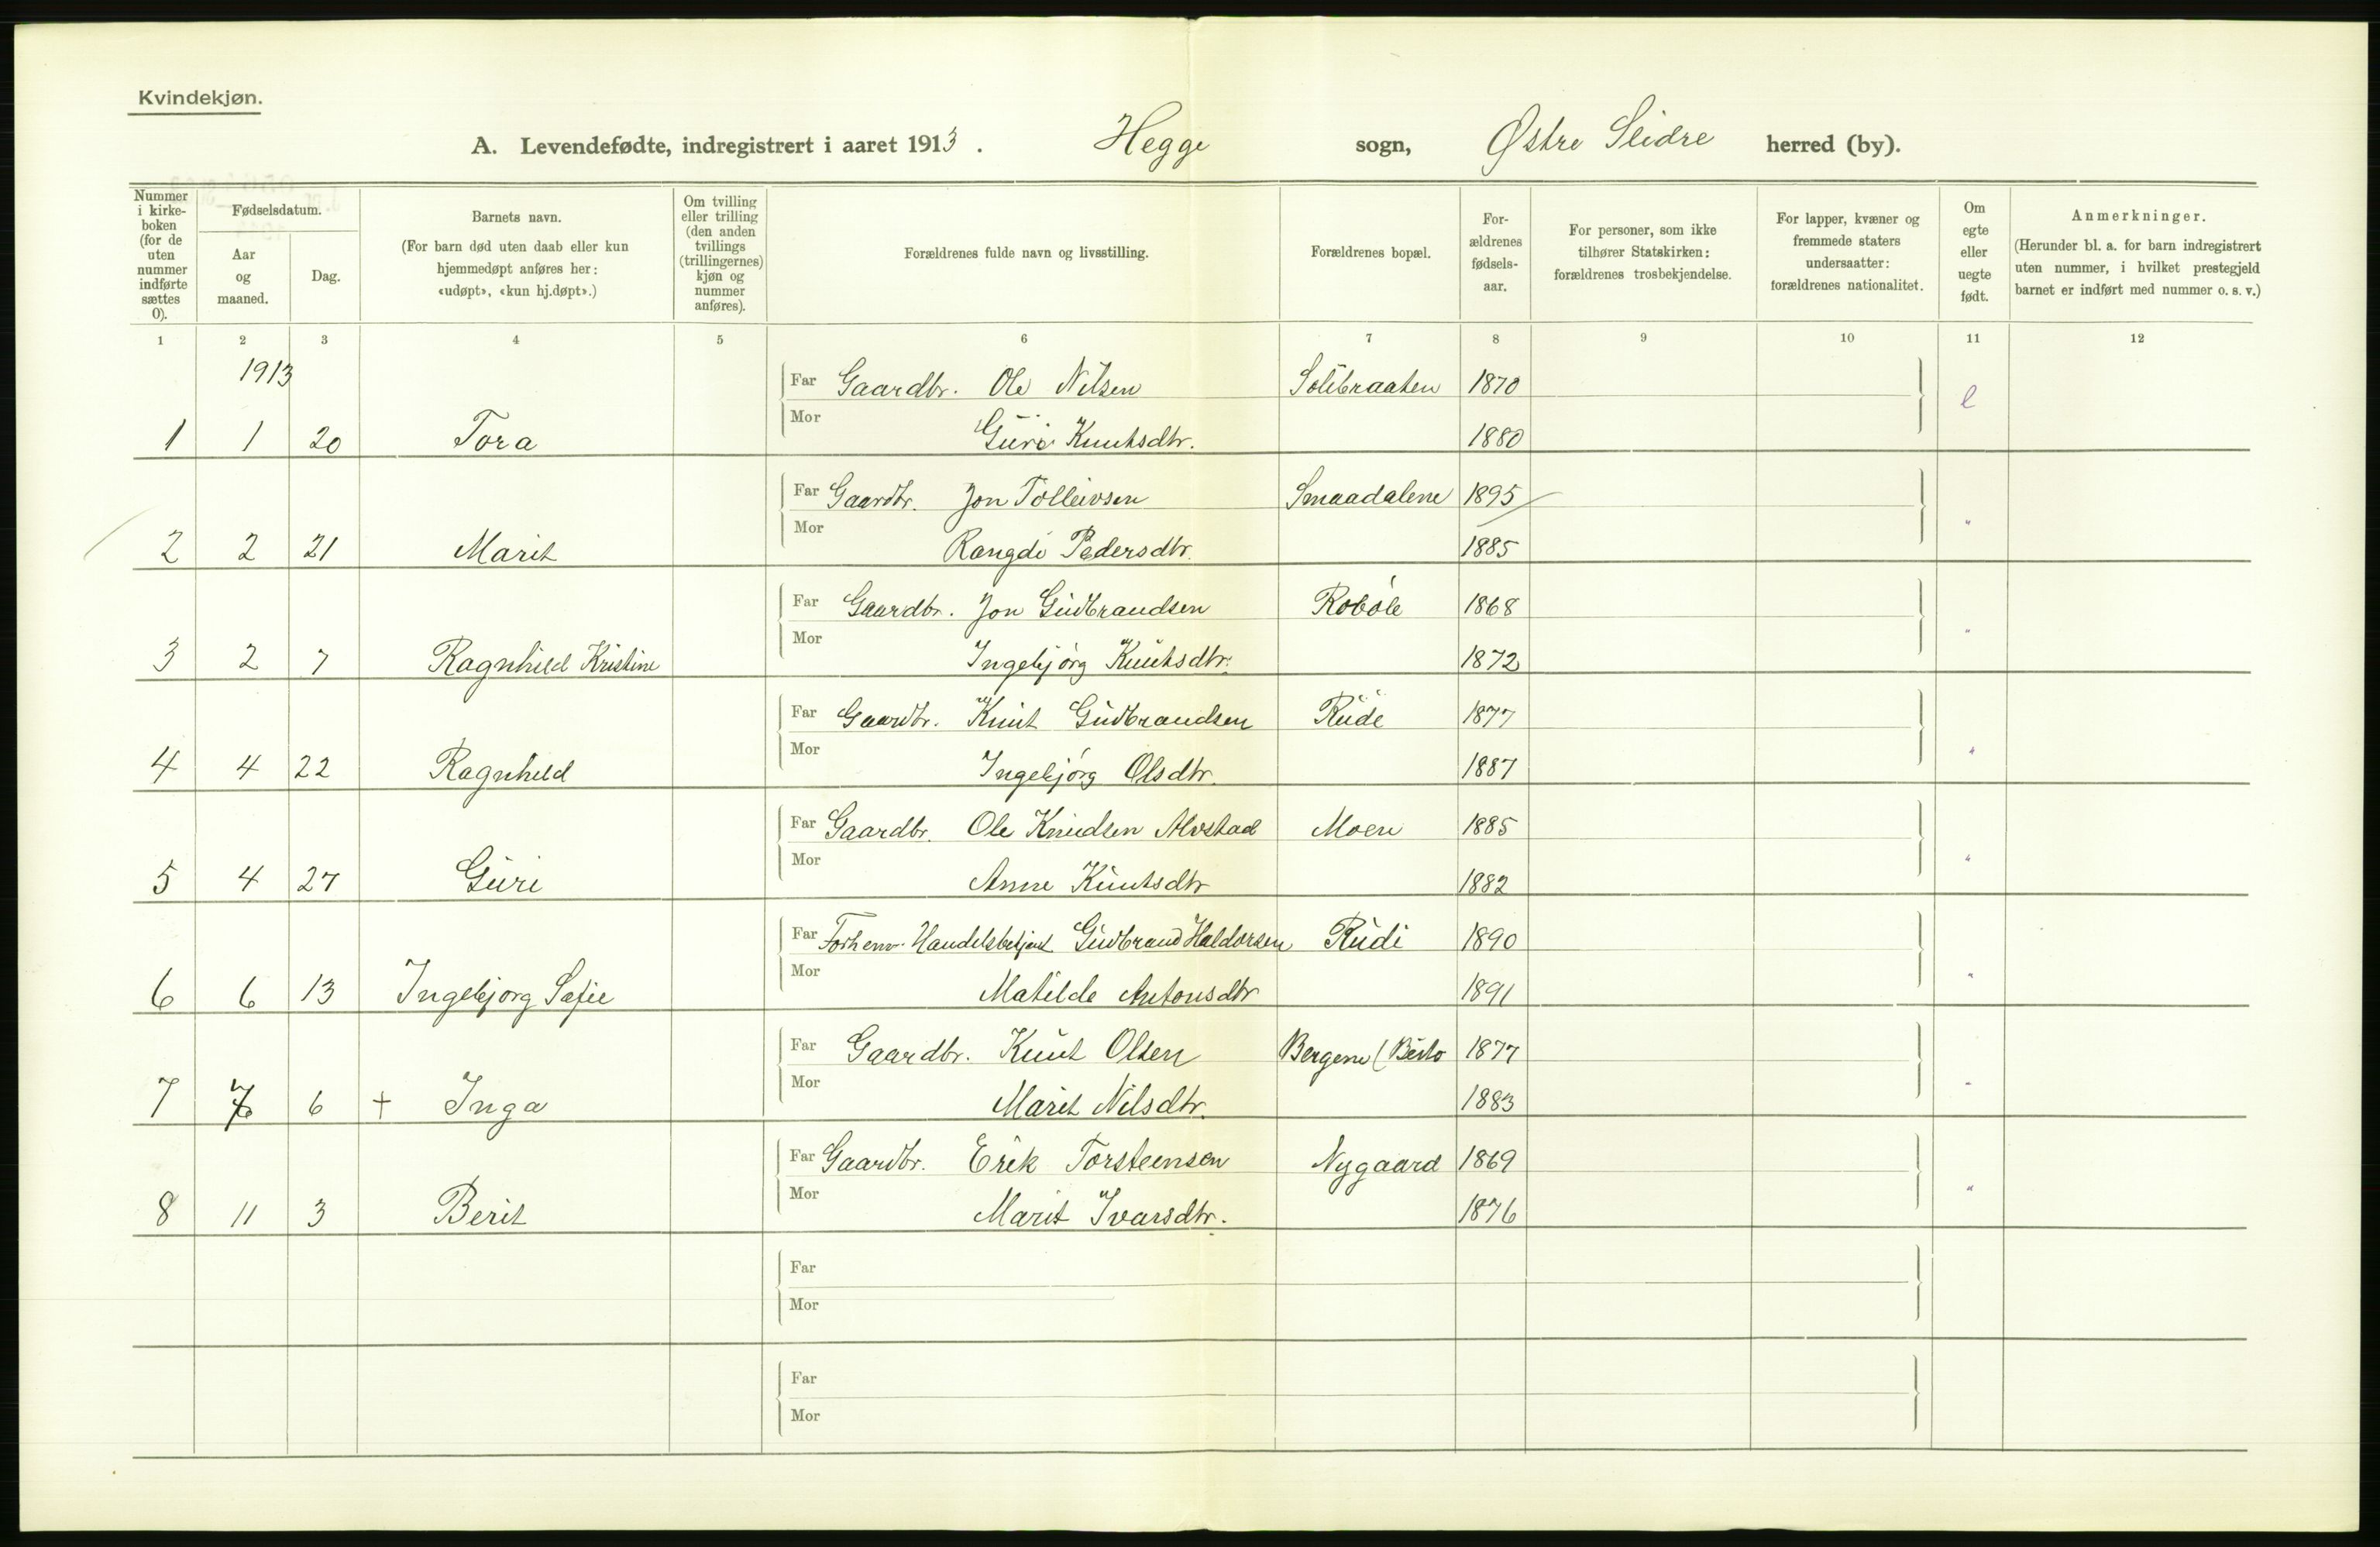 Kvindekjøn.
A. Levendefødte, indregistrert i aaret 1913. Hegge sogn, Østre Slidre herred (by).
Nummer i kirke-boken (for de uten nummer indførte sættes 0).
Fødselsdatum.
Aar og maaned.
Dag.
Barnets navn.
(For barn død uten daab eller kun hjemmedøpt anføres her: «udøpt», «kun hj.døpt».)
Om tvilling eller trilling (den anden tvillings (trillingernes) kjøn og nummer anføres).
Forældrenes fulde navn og livsstilling.
Forældrenes bopæl.
For-ældrenes fødsels-aar.
For personer, som ikke tilhører Statskirken: forældrenes trosbekjendelse.
For lapper, kvæner og fremmede staters undersaatter: forældrenes nationalitet.
Om egte eller uegte født.
Anmerkninger.
(Herunder bl. a. for barn indregistrert uten nummer, i hvilket prestegjeld barnet er indført med nummer o. s. v.)
1 2 3 4 5 6 7 8 9 10 11 12
1913
Far Gaardbr. Ole Nilsen Solibraaten 1870 e
1 1 20 Tora Mor Guri Knutsdtr. 1880
Far Gaardbr. Jon Tolleivsen Smaadalene 1895 "
2 2 21 Marit Mor Rangdi Pedersdtr. 1885
Far Gaardbr. Jon Gudbrandsen Robøle 1868 "
3 2 7 Ragnhild Kristine Mor Ingebjørg Knutsdtr. 1872
Far Gaardbr. Knut Gudbrandsen Rude 1877 "
4 4 22 Ragnhild Mor Ingebjørg Olsdtr. 1887
Far Gaardbr. Ole Knudsen Alvstad Moen 1885 "
5 4 27 Guri Mor Anne Knutsdtr 1882
Far Forhenv. Handelsbetjent Gudbrand Haldorsen Rudi 1890 "
6 6 13 Ingebjørg Sofie Mor Matilde Antonsdtr 1891
Far Gaardbr. Knut Olsen Bergene (Beito 1877 "
7 6 + Inga Mor Marit Nilsdtr. 1883
Far Gaardbr. Erik Torsteensen Nygaard 1869 "
8 11 3 Berit Mor Marit Ivarsdtr. 1876
Far
Mor
Far
Mor